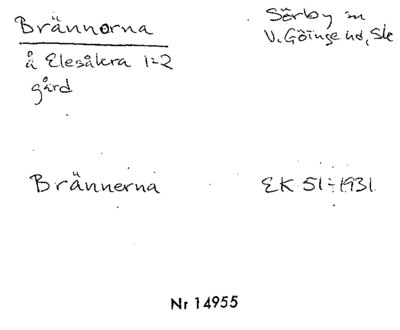 Brännorna
Sörby sn
V. Göinge hd, Sk
å Elesåkra 1=2
gård
Brännerna
EK 51 ÷ 1931
Nr 14955